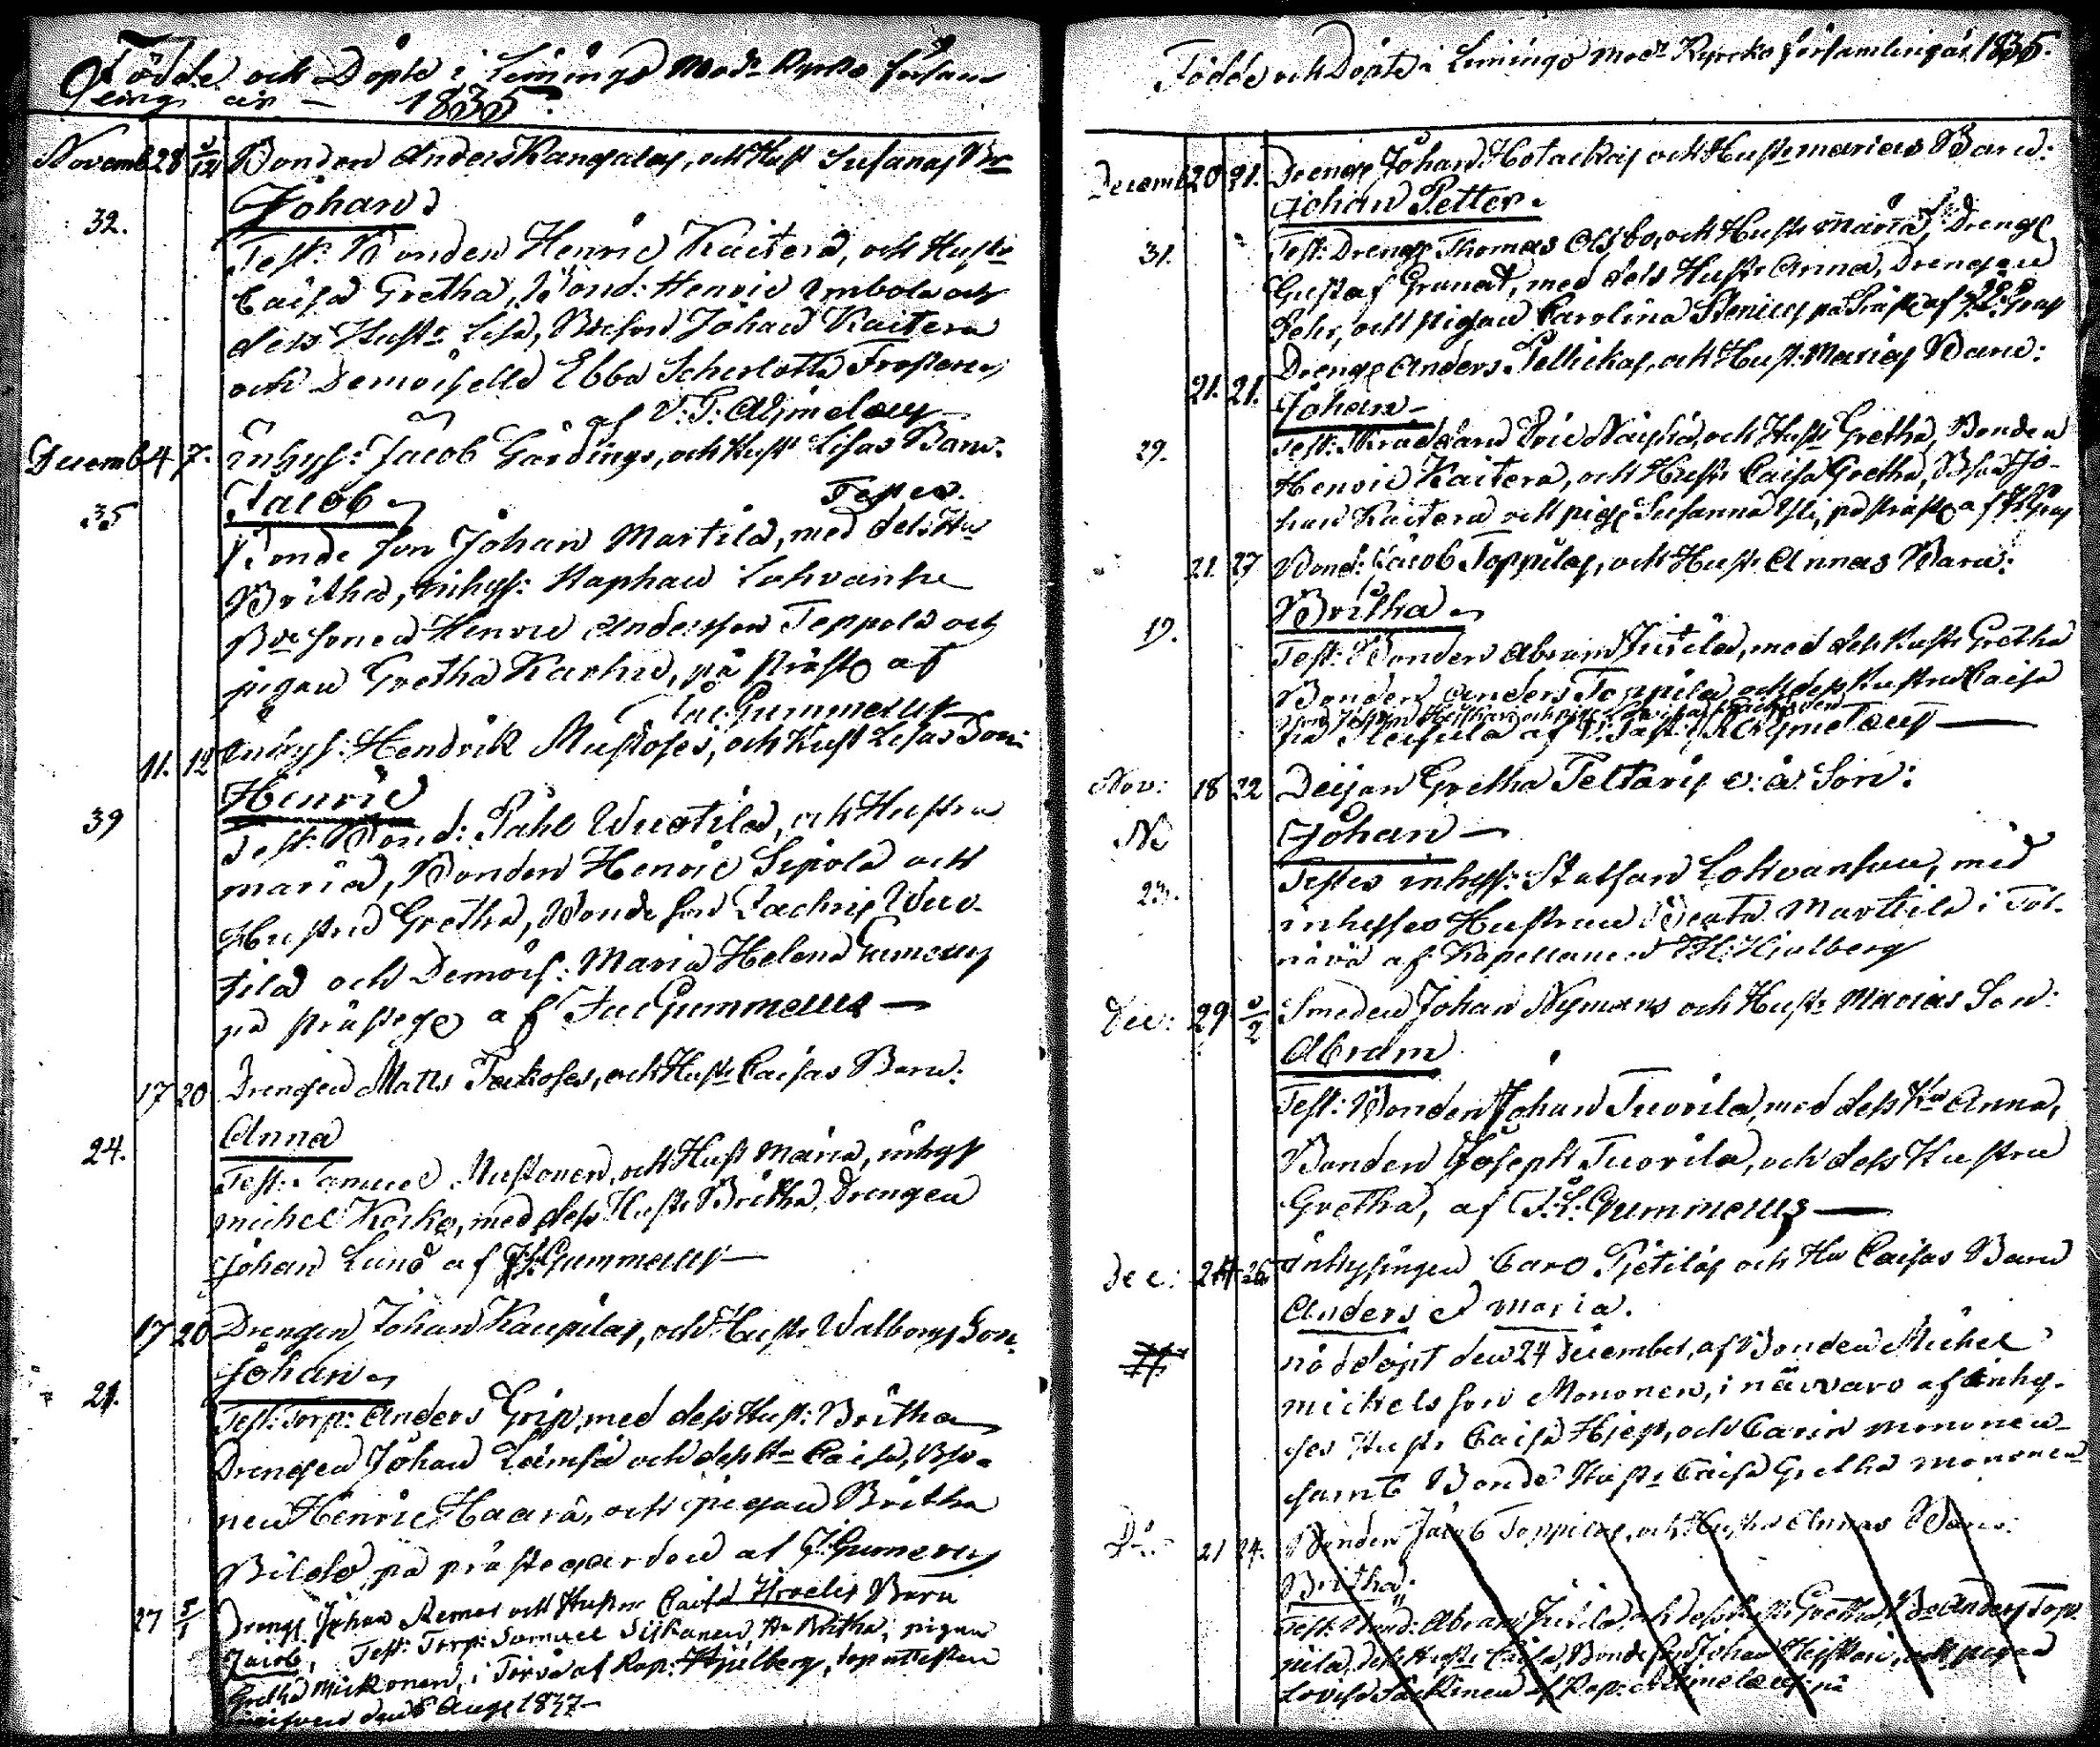 Födde och Döpte i Limingo Modr Kyrko försam
ling år — 1835.
Novemb 28 5/12 Bonden Anders Kangalas, och Hust Susanas Bn
Johan
32.
Test: Bonden Henric Kaitera, och Hustr
Caisa Gretha, Bond: Henric Umbola och
dess Hustr Lisa, Bdeson Johan Kaitera
och Demoiselle Ebba Scherlotta Frosterus
af V: P: Alsimelaeus
Decemb 4 7. Inhys: Jacob Gårdings, och Hust Lisas Barn.
Jacob Testes.
35
Bonde son Johan Martila, med dess Hu
Britha, inhys: Staphan Lohvanse
Bdesonen Henric Andersson Teppola och
pigan Gretha Karhu, på Prästg af
Gummerus
11. 12 Inhys: Hendrik Mustoses, och Hust Lisas Son:
Henric
39
Test: Bond: Påhl Wuotila, och Hustru
Maria, Bonden Henric Sipola och
Hustru Gretha, Bonde son Zachris Wuo-
tila och Demois: Maria Helena Gumerus
på prästeg af Gummerus —
17 20 Drengen Matts Juckoses, och Hustr Caisas Barn:
Anna
24.
Test: Samuel Mustonen, och Hust Maria, inhys
Michel Koiko, med dess Hustr Britha, Drengen
Johan Lund af Gummerus —
17 20 Drengen Johan Kaupilas, och Hustr Walborgs Son.
Johan
21.
Test: Torp: Anders Grip, med dess Hust: Britha
Drengen Johan Lämsä och dess Hu Caisa, Bso-
nen Henric Haara, och pigan Britha
Bilds, på prästegården af J: Gumerus
27 5/1 Drengs Johan Remes och Hustru Caisa Barn
Jacob, Test: Torp: Samuel Siikanen, Hu Britha, pigan
Gretha Mickonen, i Törvä af Kap: Hjelberg,
den 6 Aug 1837
Födde och Döpte i Limingo Modr Kyrcko församling år 1835.
Decemb 20 21. Drengs Johan Hotackas och Hustr Marias Barn:
Johan Petter
31.
Test: Dreng Thomas Alsbo, och Hustr Maria, Drengs
Gustaf Granat, med dess Hustr Anna, Drengen
Fehr, och pigan Carolina Stenius på Prästg af
Drengs Anders Pellickas, och Hust: Marias Barn:
21. 21. Johan —
29.
Test: Skräddaren Eric Naiska, och Hustr Gretha, Bonden
Henric Kaitera, och Hustr Caisa Gretha, Bson Jo-
han Kaitera och pig Susanna på Prästg af
21 27 Bond: Jacob Toppilas, och Hustr Annas Barn:
Britha
19.
Test: Bonden Abram Jutila, med dess Hustr Gretha
Bonden Anders Toppila och dess Hustru Caisa
af V: Past: Alsimelaeus —
Nov: 18 22 Deijan Gretha Peltaris o: ä: Son:
No Johan —
23.
Testes inhys: Staffan Lohvansuu, med
inhyses Hustrun Beata Martila i Tör-
näva af Kapellanen Hjulberg
Dec: 29 3/2 Smeden Johan Nymans och Hustr Marias Son:
Abram
Test: Bonden Johan Tuorila, med dess Hu Anna,
Bonden Joseph Tuorila, och dess Hustru
Gretha, af J:L: Gummerus —
Dec: 24 26 Inhysingen Caro Pjetilás och Hu Caisas Barn
Anders & Maria.
nöddöpt den 24 December, af Bonden Michel
Mickelsson Mononen, i närvaro af inhy-
ses Hustr Caisa Hjep, och Carin Mononen
samt Bonde Hustr Caisa Gretha Mononen
Dec 21 24. Bonden Jacob Toppilas, och Hustru Annas Barn:
Britha
Test: Bond: Abram Jutila, och dess Hustr Gretha, Bd Anders Top-
pila, dess Hustr Caisa, Bonde son Johan Heiskari, och pigan
Lovisa Sarkinen af Kap: Alsimelaeus på